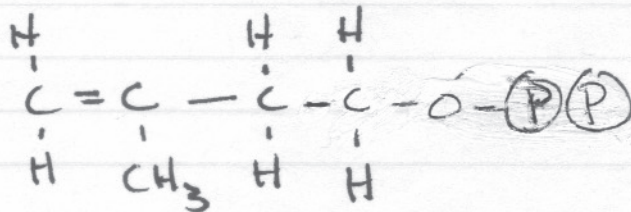 H H H
C = C — C - C - O - P P
H CH₃ H H